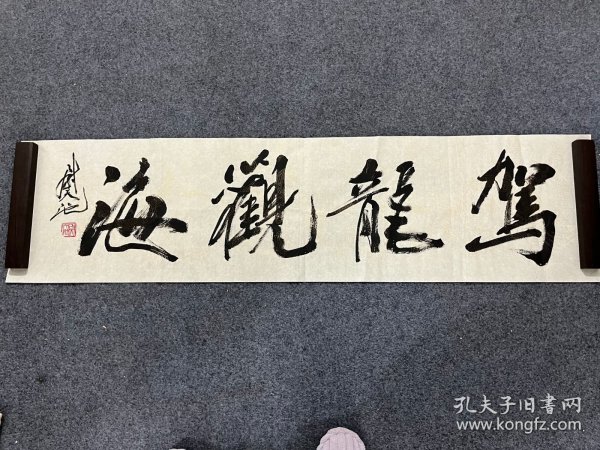 駕龍觀海
孔夫子旧書网
www.kongfz.com